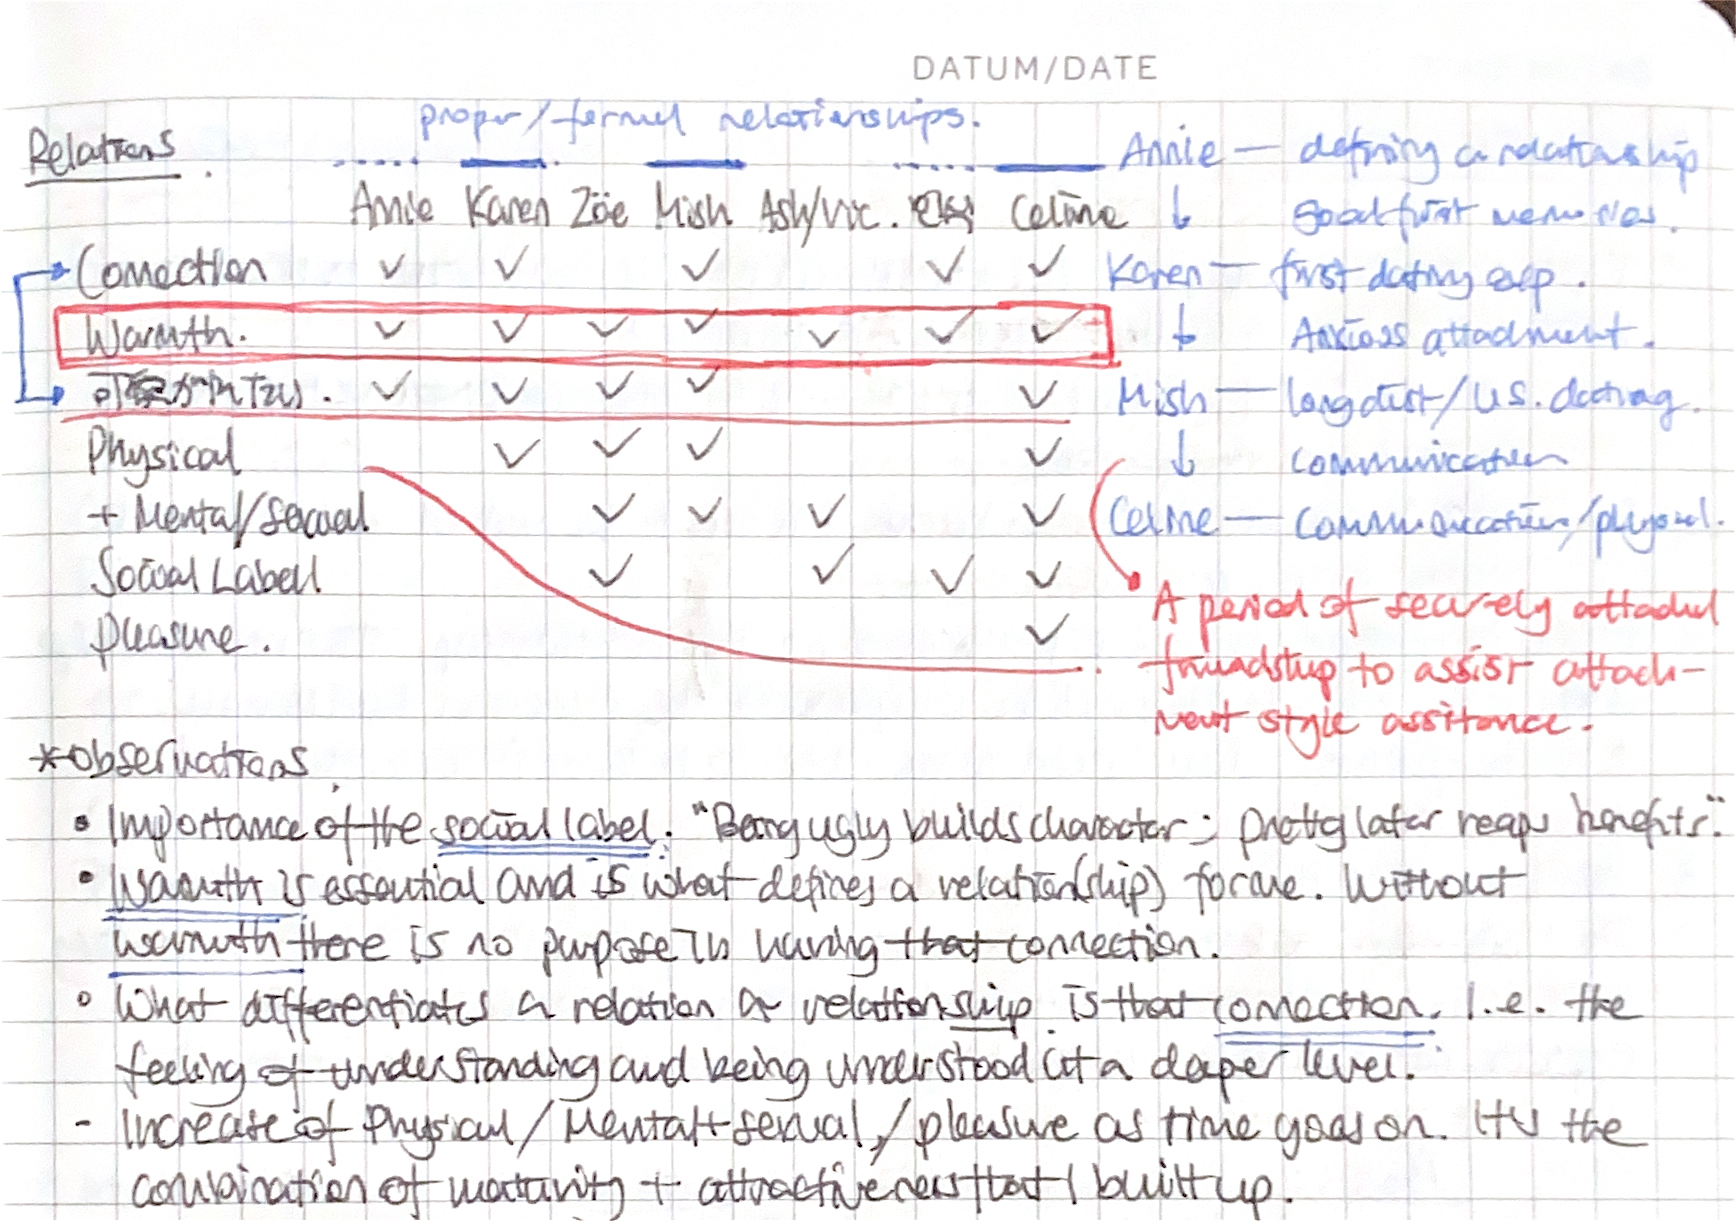 DATUM/DATE
proper/formal relationships.
Relations.
Annie Karen Zöe Mish Ash/Vic. Celine
Connection ✓ ✓ ✓ ✓ ✓
Warmth. ✓ ✓ ✓ ✓ ✓ ✓ ✓
✓ ✓ ✓ ✓ ✓
Physical ✓ ✓ ✓ ✓
+ Mental/Sexual ✓ ✓ ✓ ✓
Social Label ✓ ✓ ✓ ✓
Pleasure. ✓
Annie — defining a relationship
↓ good first memories.
Karen — first dating exp.
↓ Anxious attachment.
Mish — long dist/US. dating.
↓ Communication
Celine — Communication/physical.
A period of securely attached
friendship to assist attach-
ment style assitance.
*Observations
• Importance of the social label: "Being ugly builds character; pretty later reaps benefits."
• Warmth is essential and is what defines a relation(ship) for me. Without
warmth there is no purpose in having that connection.
• What differentiates a relation & relationship is that connection. I.e. the
feeling of understanding and being understood at a deeper level.
- Increase of Physical/Mental+sexual/pleasure as time goes on. It's the
combination of maturity + attractiveness that I built up.